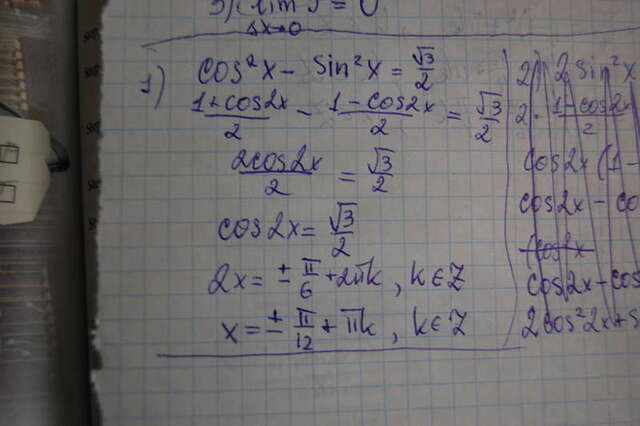 3) lim = 0
Δx→0
1) cos²x - sin²x = √3/2
(1+cos2x)/2 - (1-cos2x)/2 = √3/2
2cos2x/2 = √3/2
cos2x = √3/2
2x = ± π/6 + 2πk, k∈Z
x = ± π/12 + πk, k∈Z
2) 2 sin²x
2 · (1-cos2x)/2
cos2x (1-
cos2x - co
cos2x
cos2x - cos
2cos²2x + s